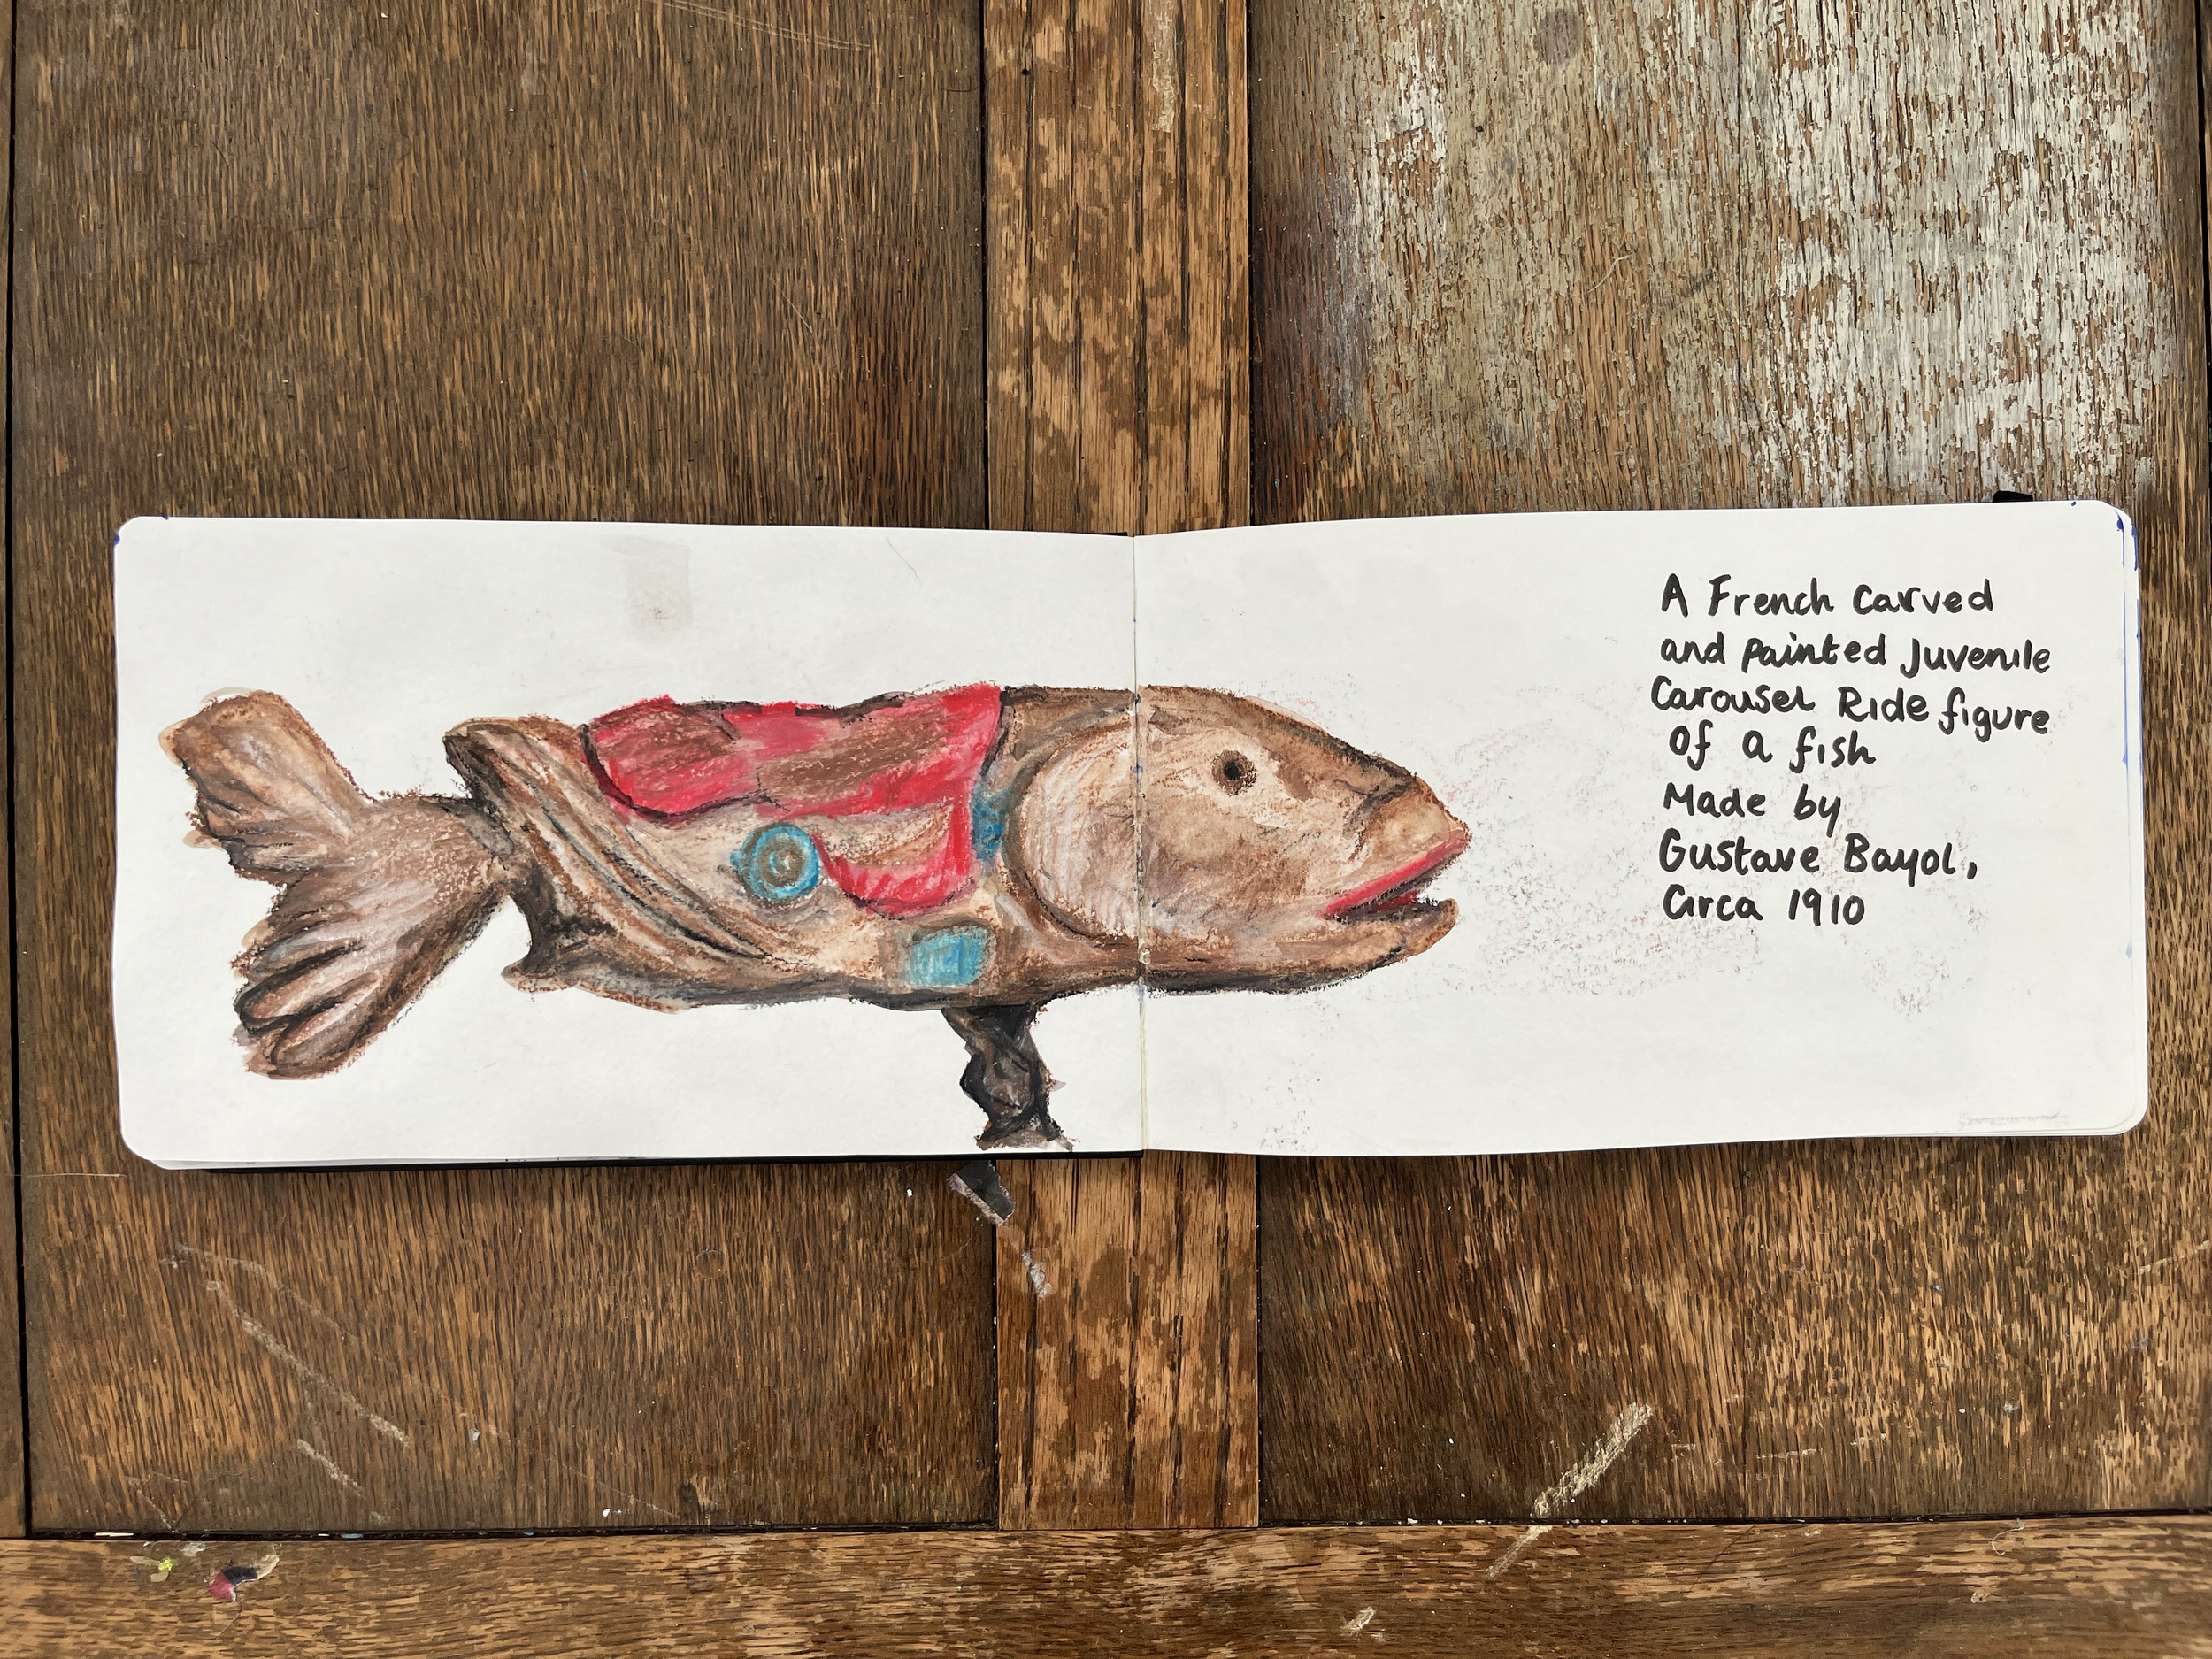 A French Carved
and painted Juvenile
Carousel Ride figure
of a fish
Made by
Gustave Bayol,
Circa 1910